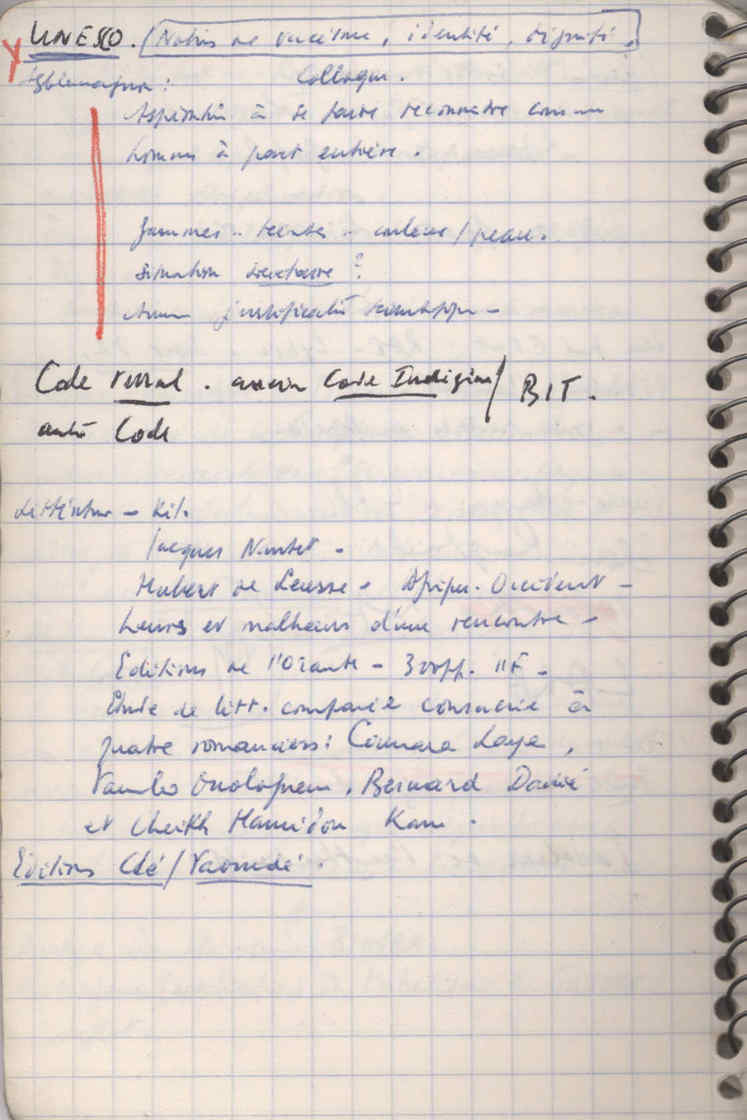 UNESCO. Notions de racisme, identité, dignité.
Colloque.
Aspiration à se faire reconnaître comme
hommes à part entière.
femmes - - couleur / peau.
situation ?
Aucune justification scientifique -
Code rural . ancien Code Indigène / BIT.
autre Code
Littérature - Lit.
Jacques Nantet -
Hubert de Leusse - Afrique-Occident -
heurs et malheurs d'une rencontre -
Editions de l'Orante - 300pp. 11F -
Etude de litt. comparée consacrée à
quatre romanciers : Camara Laye,
Yambo Ouologuem, Bernard Dadié
et Cheikh Hamidou Kane .
Editions Clé / Yaoundé.